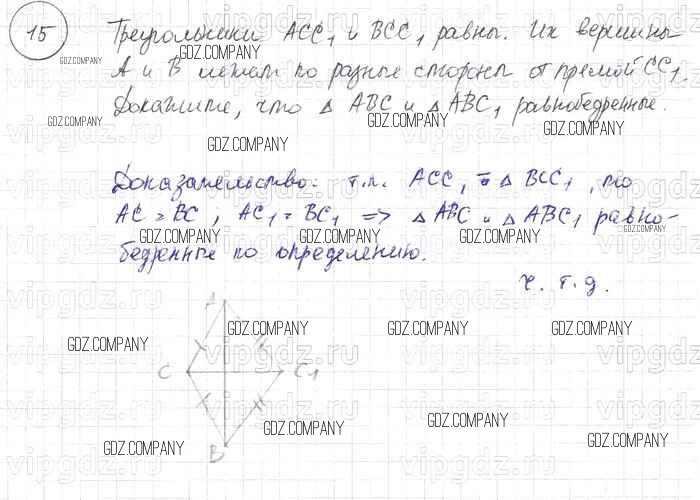 15
Треугольники ACC₁ и BCC₁ равны. Их вершины
A и B лежат по разные стороны от прямой CC₁.
Докажите, что △ ABC и △ ABC₁ равнобедренные.
Доказательство: т.к. ACC₁ = △ BCC₁, то
AC = BC; AC₁ = BC₁ => △ ABC и △ ABC₁ равно-
бедренные по определению.
ч. т. д.
A
C
C₁
B
GDZ.COMPANY
vipgdz.ru